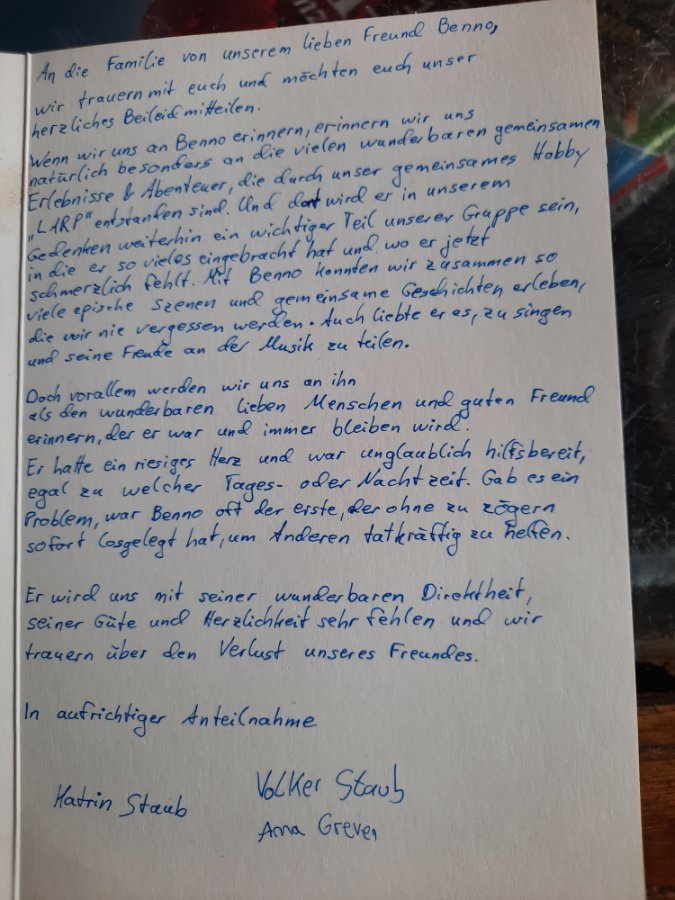 An die Familie von unserem lieben Freund Benno,
wir trauern mit euch und möchten euch unser
herzliches Beileid mitteilen.
Wenn wir uns an Benno erinnern, erinnern wir uns
natürlich besonders an die vielen wunderbaren gemeinsamen
Erlebnisse & Abenteuer, die durch unser gemeinsames Hobby
„LARP“ entstanden sind. Und dort wird er in unserem
Gedenken weiterhin ein wichtiger Teil unserer Gruppe sein,
in die er so vieles eingebracht hat und wo er jetzt
schmerzlich fehlt. Mit Benno konnten wir zusammen so
viele epische Szenen und gemeinsame Geschichten erleben,
die wir nie vergessen werden. Auch liebte er es, zu singen
und seine Freude an der Musik zu teilen.
Doch vorallem werden wir uns an ihn
als den wunderbaren lieben Menschen und guten Freund
erinnern, der er war und immer bleiben wird.
Er hatte ein riesiges Herz und war unglaublich hilfsbereit,
egal zu welcher Tages- oder Nachtzeit. Gab es ein
Problem, war Benno oft der erste, der ohne zu zögern
sofort losgelegt hat, um Anderen tatkräftig zu helfen.
Er wird uns mit seiner wunderbaren Direktheit,
seiner Güte und Herzlichkeit sehr fehlen und wir
trauern über den Verlust unseres Freundes.
In aufrichtiger Anteilnahme
Katrin Staub
Volker Staub
Anna Greven